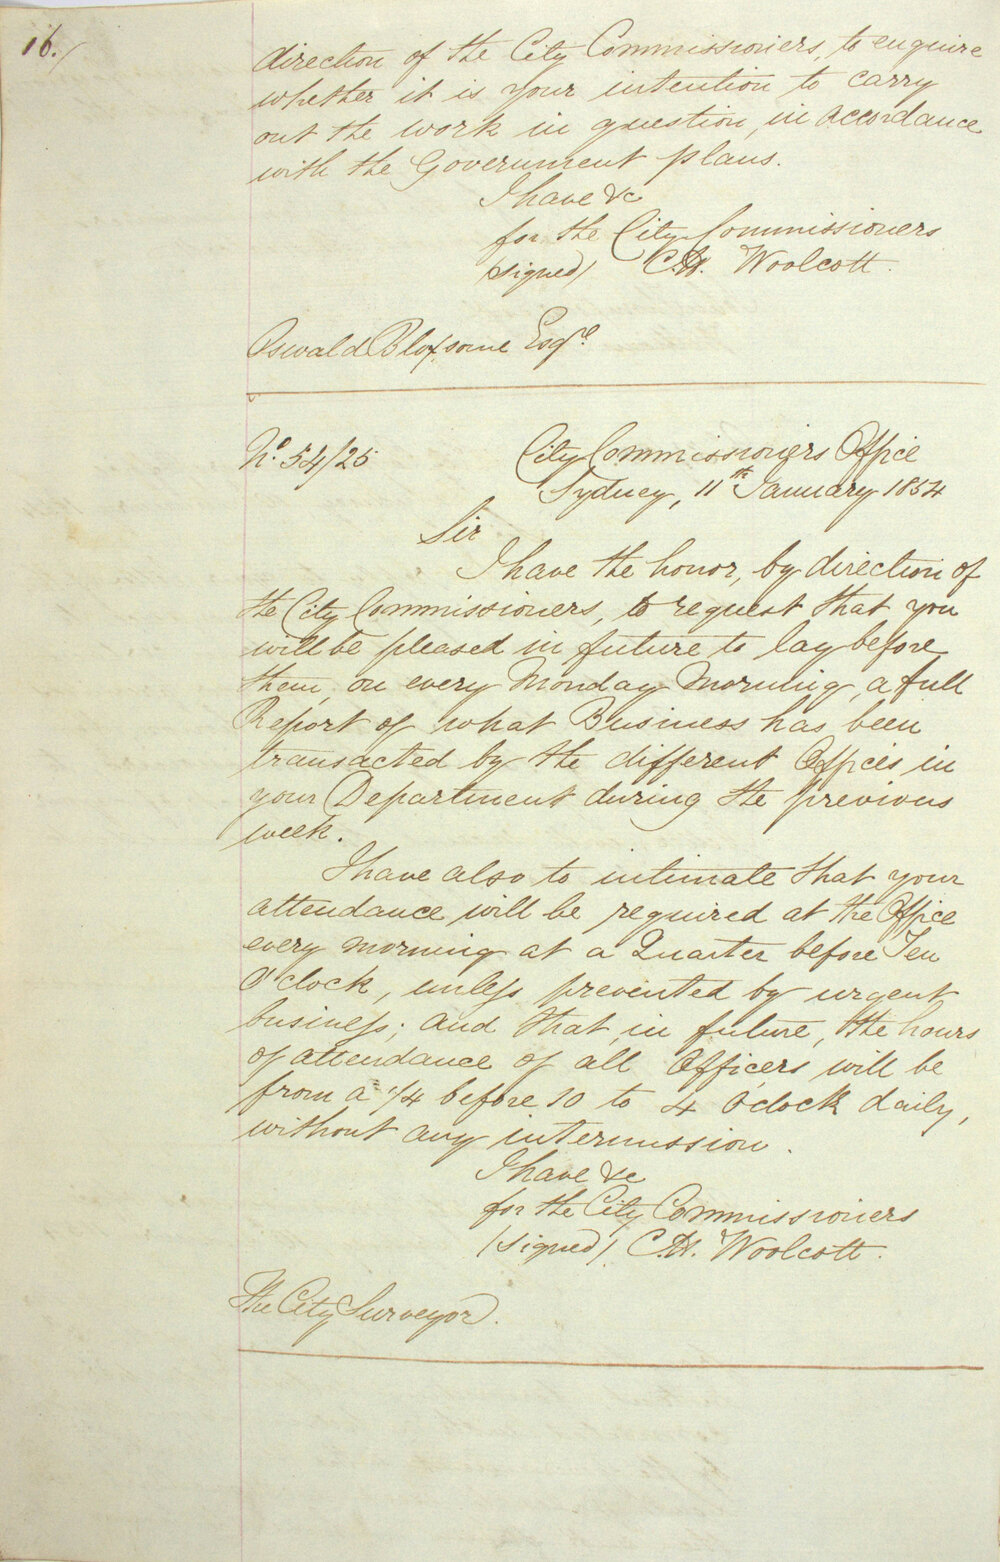 16./
direction of the City Commissioners, to enquire
whether it is your intention to carry
out the work in question, in accordance
with the Government plans.
I have &c
for the City Commissioners
(signed) C.H. Woolcott.
Oswald Bloxsome Esqre.
No. 54/25
City Commissioners Office
Sydney, 11th January 1854
Sir
I have the honor, by direction of
the City Commissioners, to request that you
will be pleased in future to lay before
them, on every Monday Morning, a full
Report of what Business has been
transacted by the different Offices in
your Department during the previous
week.
I have also to intimate that your
attendance will be required at the Office
every morning at a Quarter before Ten
O'clock, unless prevented by urgent
business; and that, in future, the hours
of attendance of all Officers will be
from a 1/4 before 10 to 4 O'clock daily,
without any intermission.
I have &c
for the City Commissioners
(signed) C.H. Woolcott.
The City Surveyor.